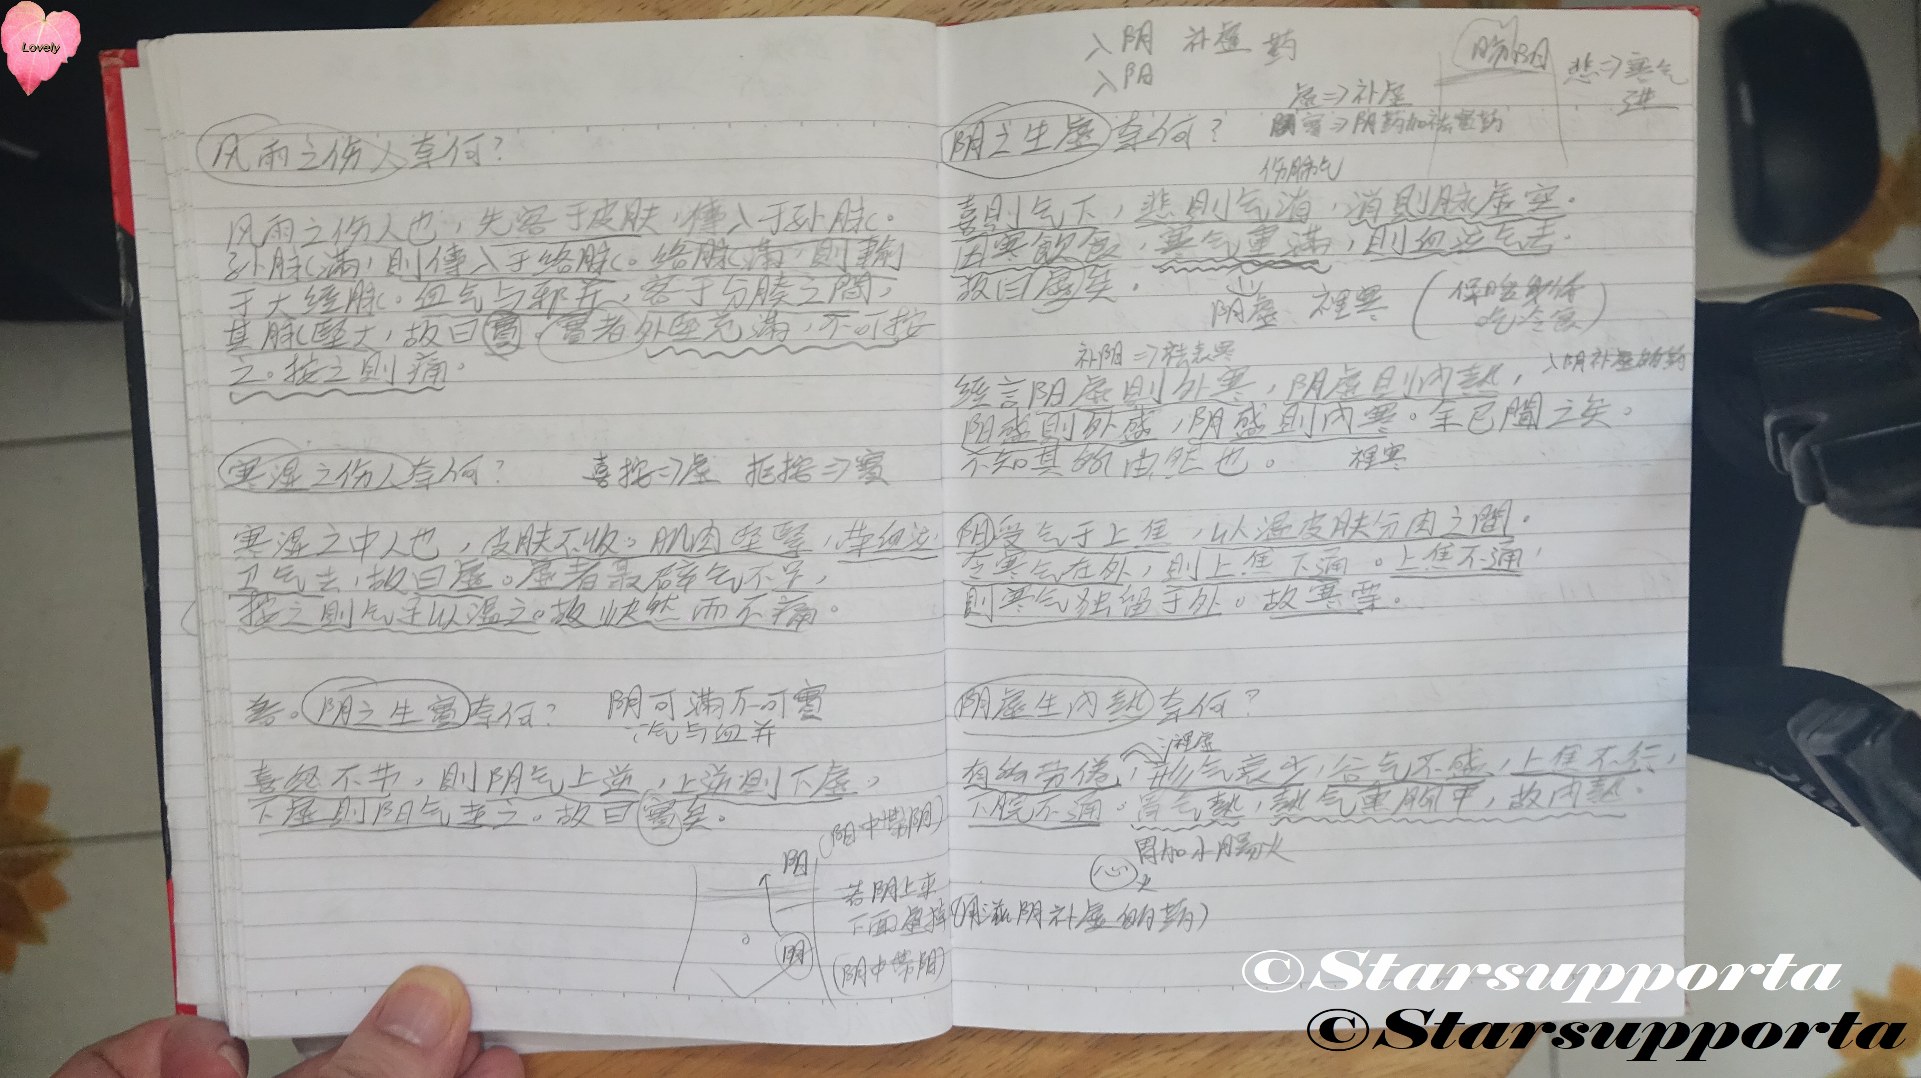 Lovely
风雨之伤人奈何?
风雨之伤人也,先客于皮肤,傳入于孙脉。
孙脉满,則傳入于络脉。络脉滿,則輸
于大经脉。血气与邪并,客于分腠之間,
其脉堅大,故曰實。實者外坚充滿,不可按
之。按之則痛。
寒湿之伤人奈何? 喜按⇒虚 拒按⇒實
寒湿之中人也,皮肤不收。肌肉坚緊,荣血泣
卫气去,故曰虚。虚者聂辟气不足,
按之則气足以温之。故快然而不痛。
善。阴之生實奈何? 阴可满不可實
气与血并
喜怒不节,則阴气上逆,上逆則下虚,
下虚則阳气走之。故曰實矣。
阳
若阴上来
入阴 补虚 药
入阳
悲⇒寒气
进
虚⇒补虚
阴之生虚奈何?
伤脉气
喜則气下,悲則气消,消則脉虚空。
因寒飲食,寒气熏滿,則血泣气去。
故曰虚矣。
阴虚 裡寒
补阳⇒祛表寒
入阴补虚的药
经言阳虚則外寒,阴虚則內熱,
阳盛則外感,阴盛則内寒。余已聞之矣。
不知其的由然也。 裡寒
阳受气于上焦,以温皮肤分肉之間。
令寒气在外,則上焦不通。上焦不通,
則寒气独留于外。故寒栗。
阴虚生内熱奈何?
裡虚
有所劳倦,形气衰少,谷气不盛,上焦不行,
下脘不通。胃气熱,熱气熏胸中,故内熱。
胃加小肠火
心火
(用滋阴补虚的药)
©Starsupporta
©Starsupporta